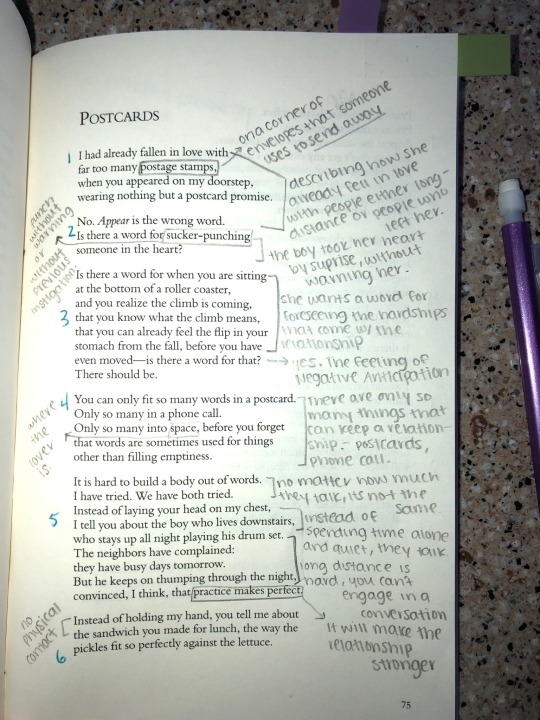 POSTCARDS
on a corner of
envelopes that someone
uses to send away
1 I had already fallen in love with
far too many postage stamps,
when you appeared on my doorstep,
wearing nothing but a postcard promise.
describing how she
already fell in love
with people either long-
distance or people who
left her.
No. Appear is the wrong word.
2 Is there a word for sucker-punching
someone in the heart?
punch
without
warning
or
without
previous
instigation
the boy took her heart
by suprise, without
warning her.
Is there a word for when you are sitting
at the bottom of a roller coaster,
and you realize the climb is coming,
3 that you know what the climb means,
that you can already feel the flip in your
stomach from the fall, before you have
even moved—is there a word for that?
There should be.
she wants a word for
foreseeing the hardships
that come w/ the
relationship
yes. The feeling of
Negative Anticipation
4 You can only fit so many words in a postcard.
Only so many in a phone call.
Only so many into space, before you forget
that words are sometimes used for things
other than filling emptiness.
where
the
lover
is
There are only so
many things that
can keep a relation-
ship - postcards,
phone call.
It is hard to build a body out of words.
I have tried. We have both tried.
Instead of laying your head on my chest,
5 I tell you about the boy who lives downstairs,
who stays up all night playing his drum set.
The neighbors have complained:
they have busy days tomorrow.
But he keeps on thumping through the night,
convinced, I think, that practice makes perfect.
no matter how much
they talk, its not the
same.
instead of
spending time alone
and quiet, they talk
long distance is
hard, you can't
engage in a
conversation
It will make the
relationship
stronger
Instead of holding my hand, you tell me about
the sandwich you made for lunch, the way the
6 pickles fit so perfectly against the lettuce.
no
physical
contact
75